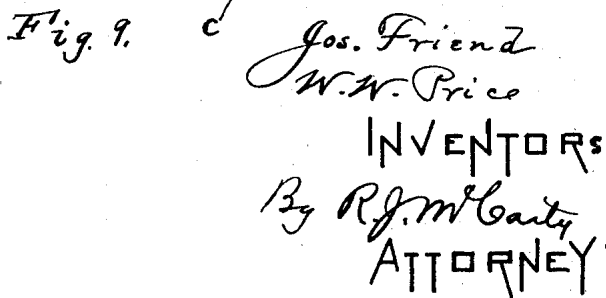 Fig. 9. c
Jos. Friend
W. W. Price
INVENTORS
By R. J. McCarty
ATTORNEY